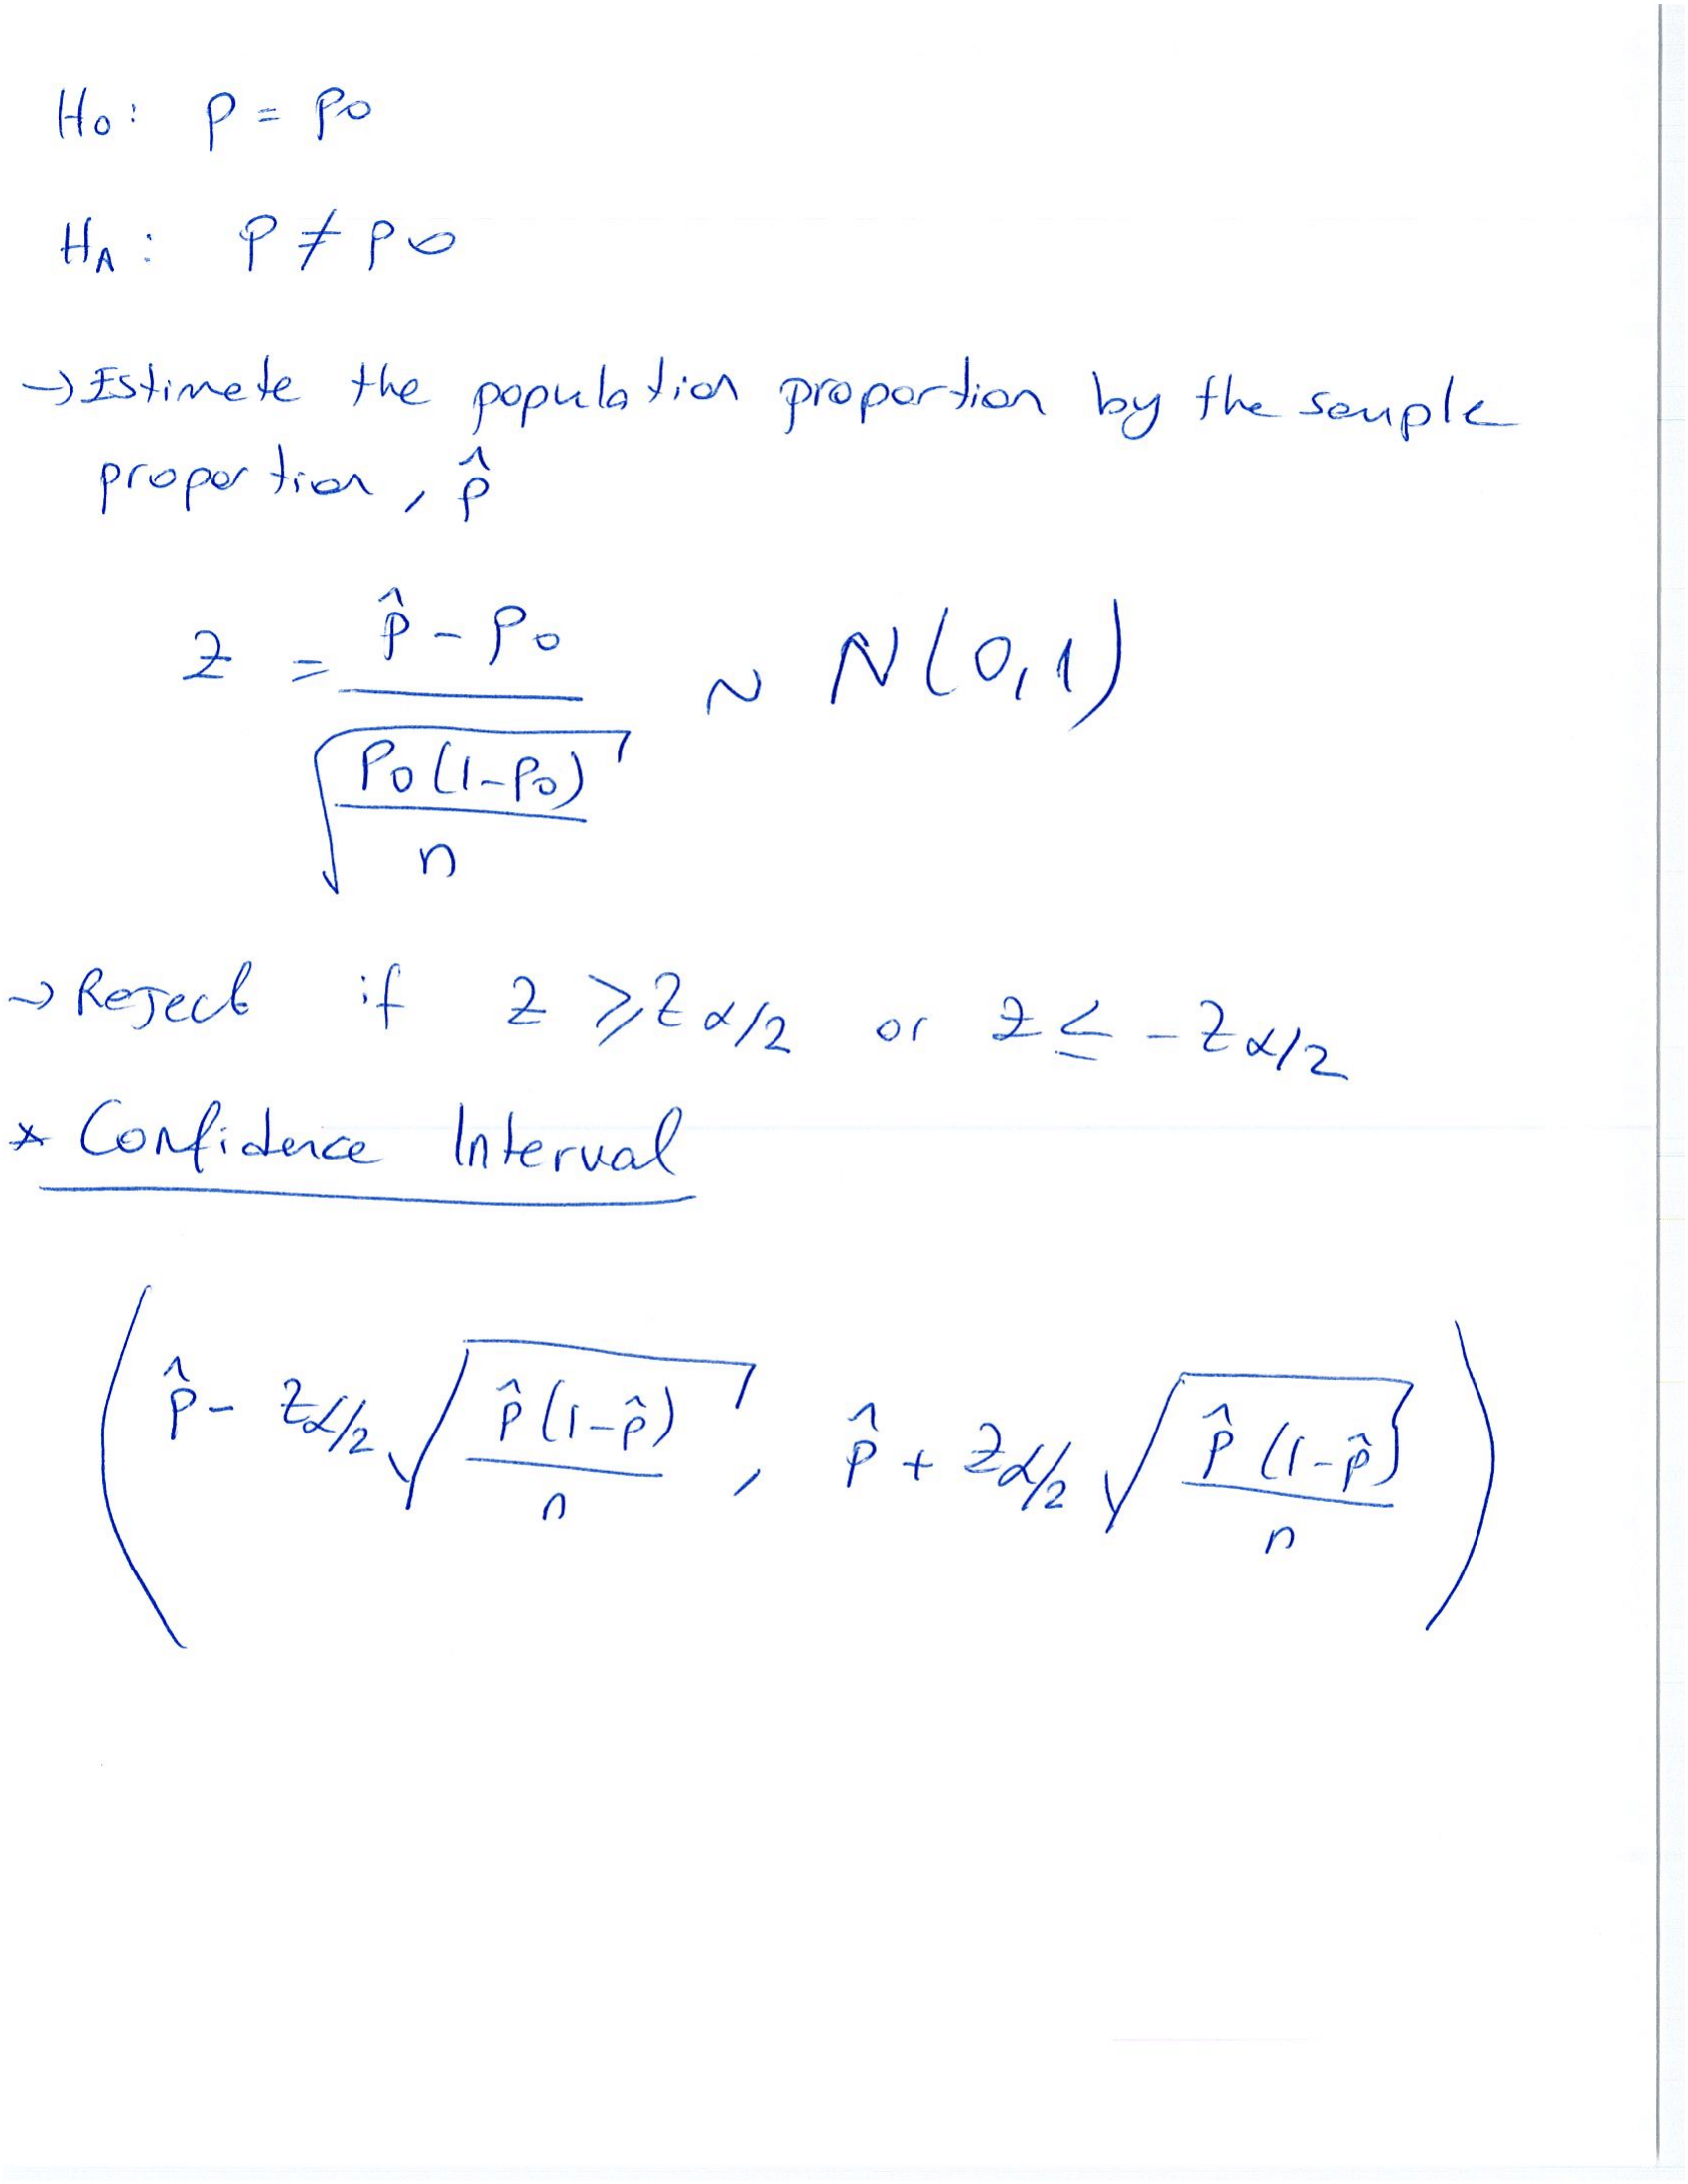 H₀: p = p₀
H_A: p ≠ p₀
→ Estimate the population proportion by the sample
proportion, p̂
z = (p̂ - p₀) / √(p₀(1-p₀) / n) ~ N(0,1)
→ Reject if z ≥ z_α/2 or z ≤ -z_α/2
* Confidence Interval
(p̂ - z_α/2 √(p̂(1-p̂) / n), p̂ + z_α/2 √(p̂(1-p̂) / n))